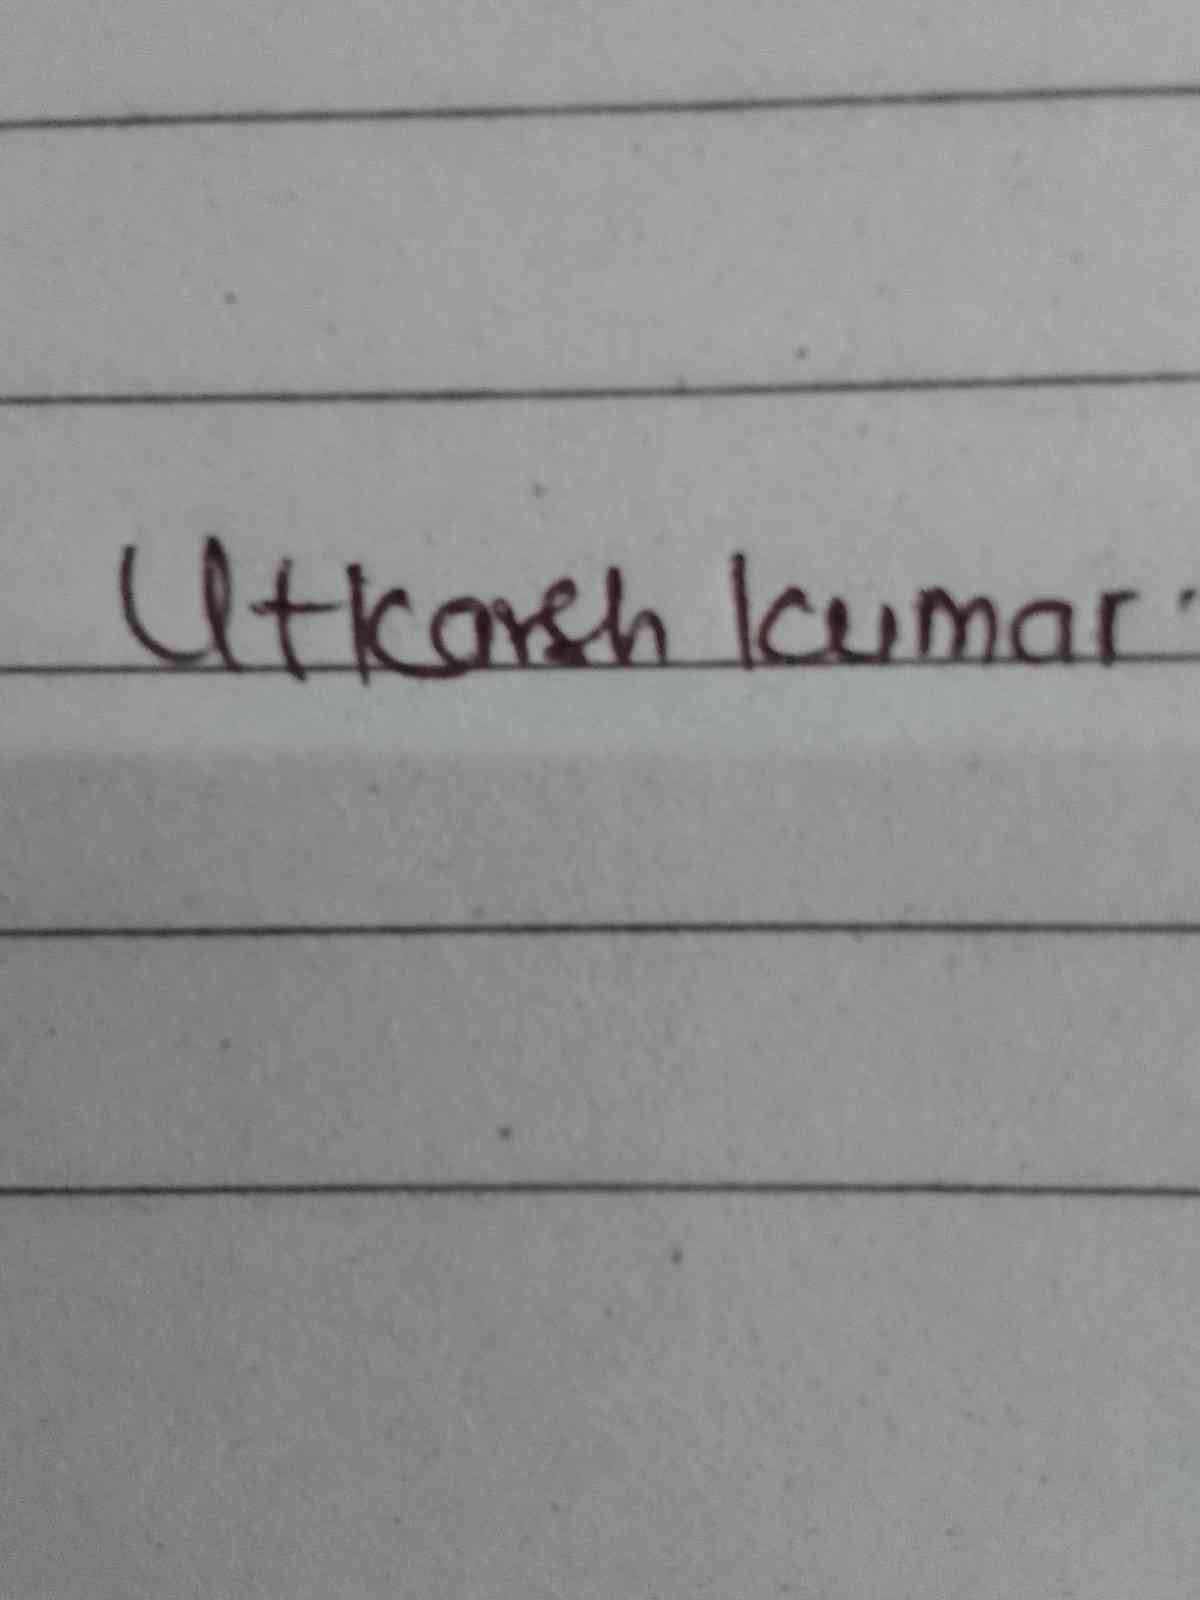 Utkarsh kumar.